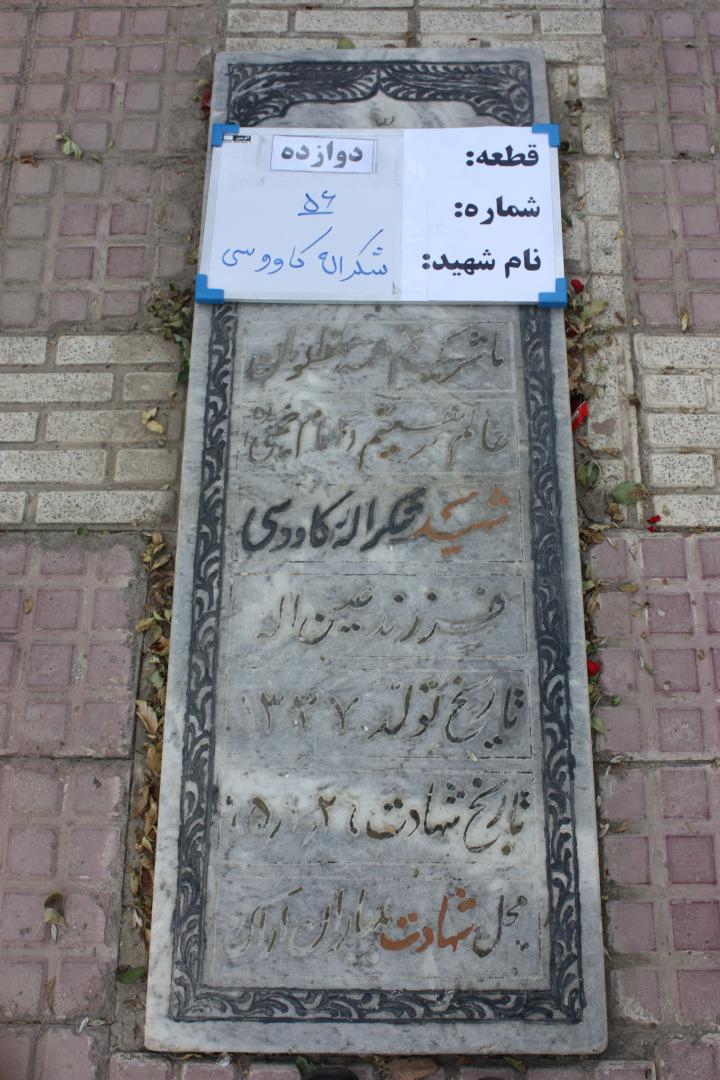 قطعه: دوازده
شماره: ۵۶
نام شهید: شکراله کاووسی
ما شریک غم همه مظلومان
عالم هستیم امام خمینی
شهید شکراله کاووسی
فرزند عین اله
تاریخ تولد ۱۳۳۷
تاریخ شهادت
محل شهادت بمباران اراک